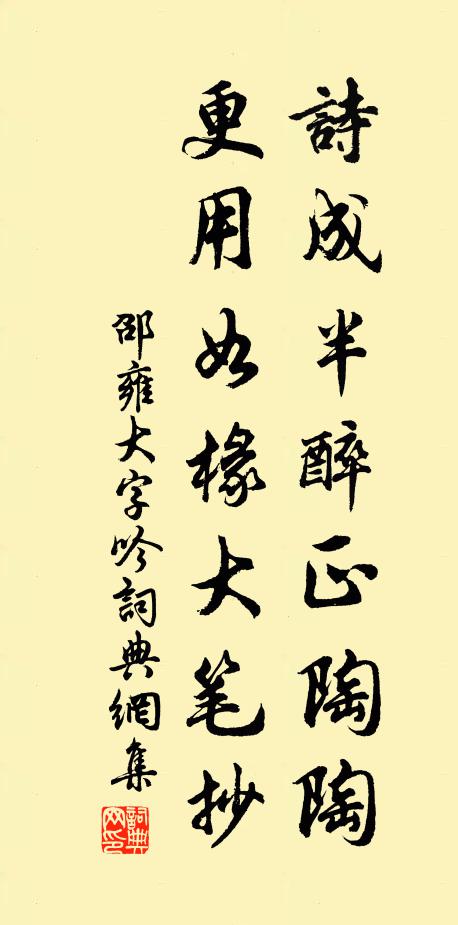 詩成半醉正陶陶
更用如椽大笔抄
邵雍大字吟詞典網集
詞典网印